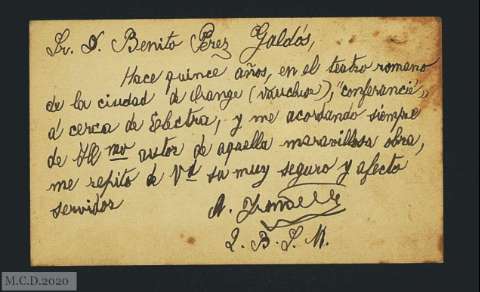 Sr. D. Benito Pérez Galdós,
Hace quince años, en el teatro romano
de la ciudad d'Orange (Vaucluse), "conferancié"
al cerca de Electra, y me acordando siempre
de Yllmo autor de aquella maravillosa obra,
me repito de Vd su muy seguro y afecto
servidor
A.
Q. B. S. M.
M.C.D.2020